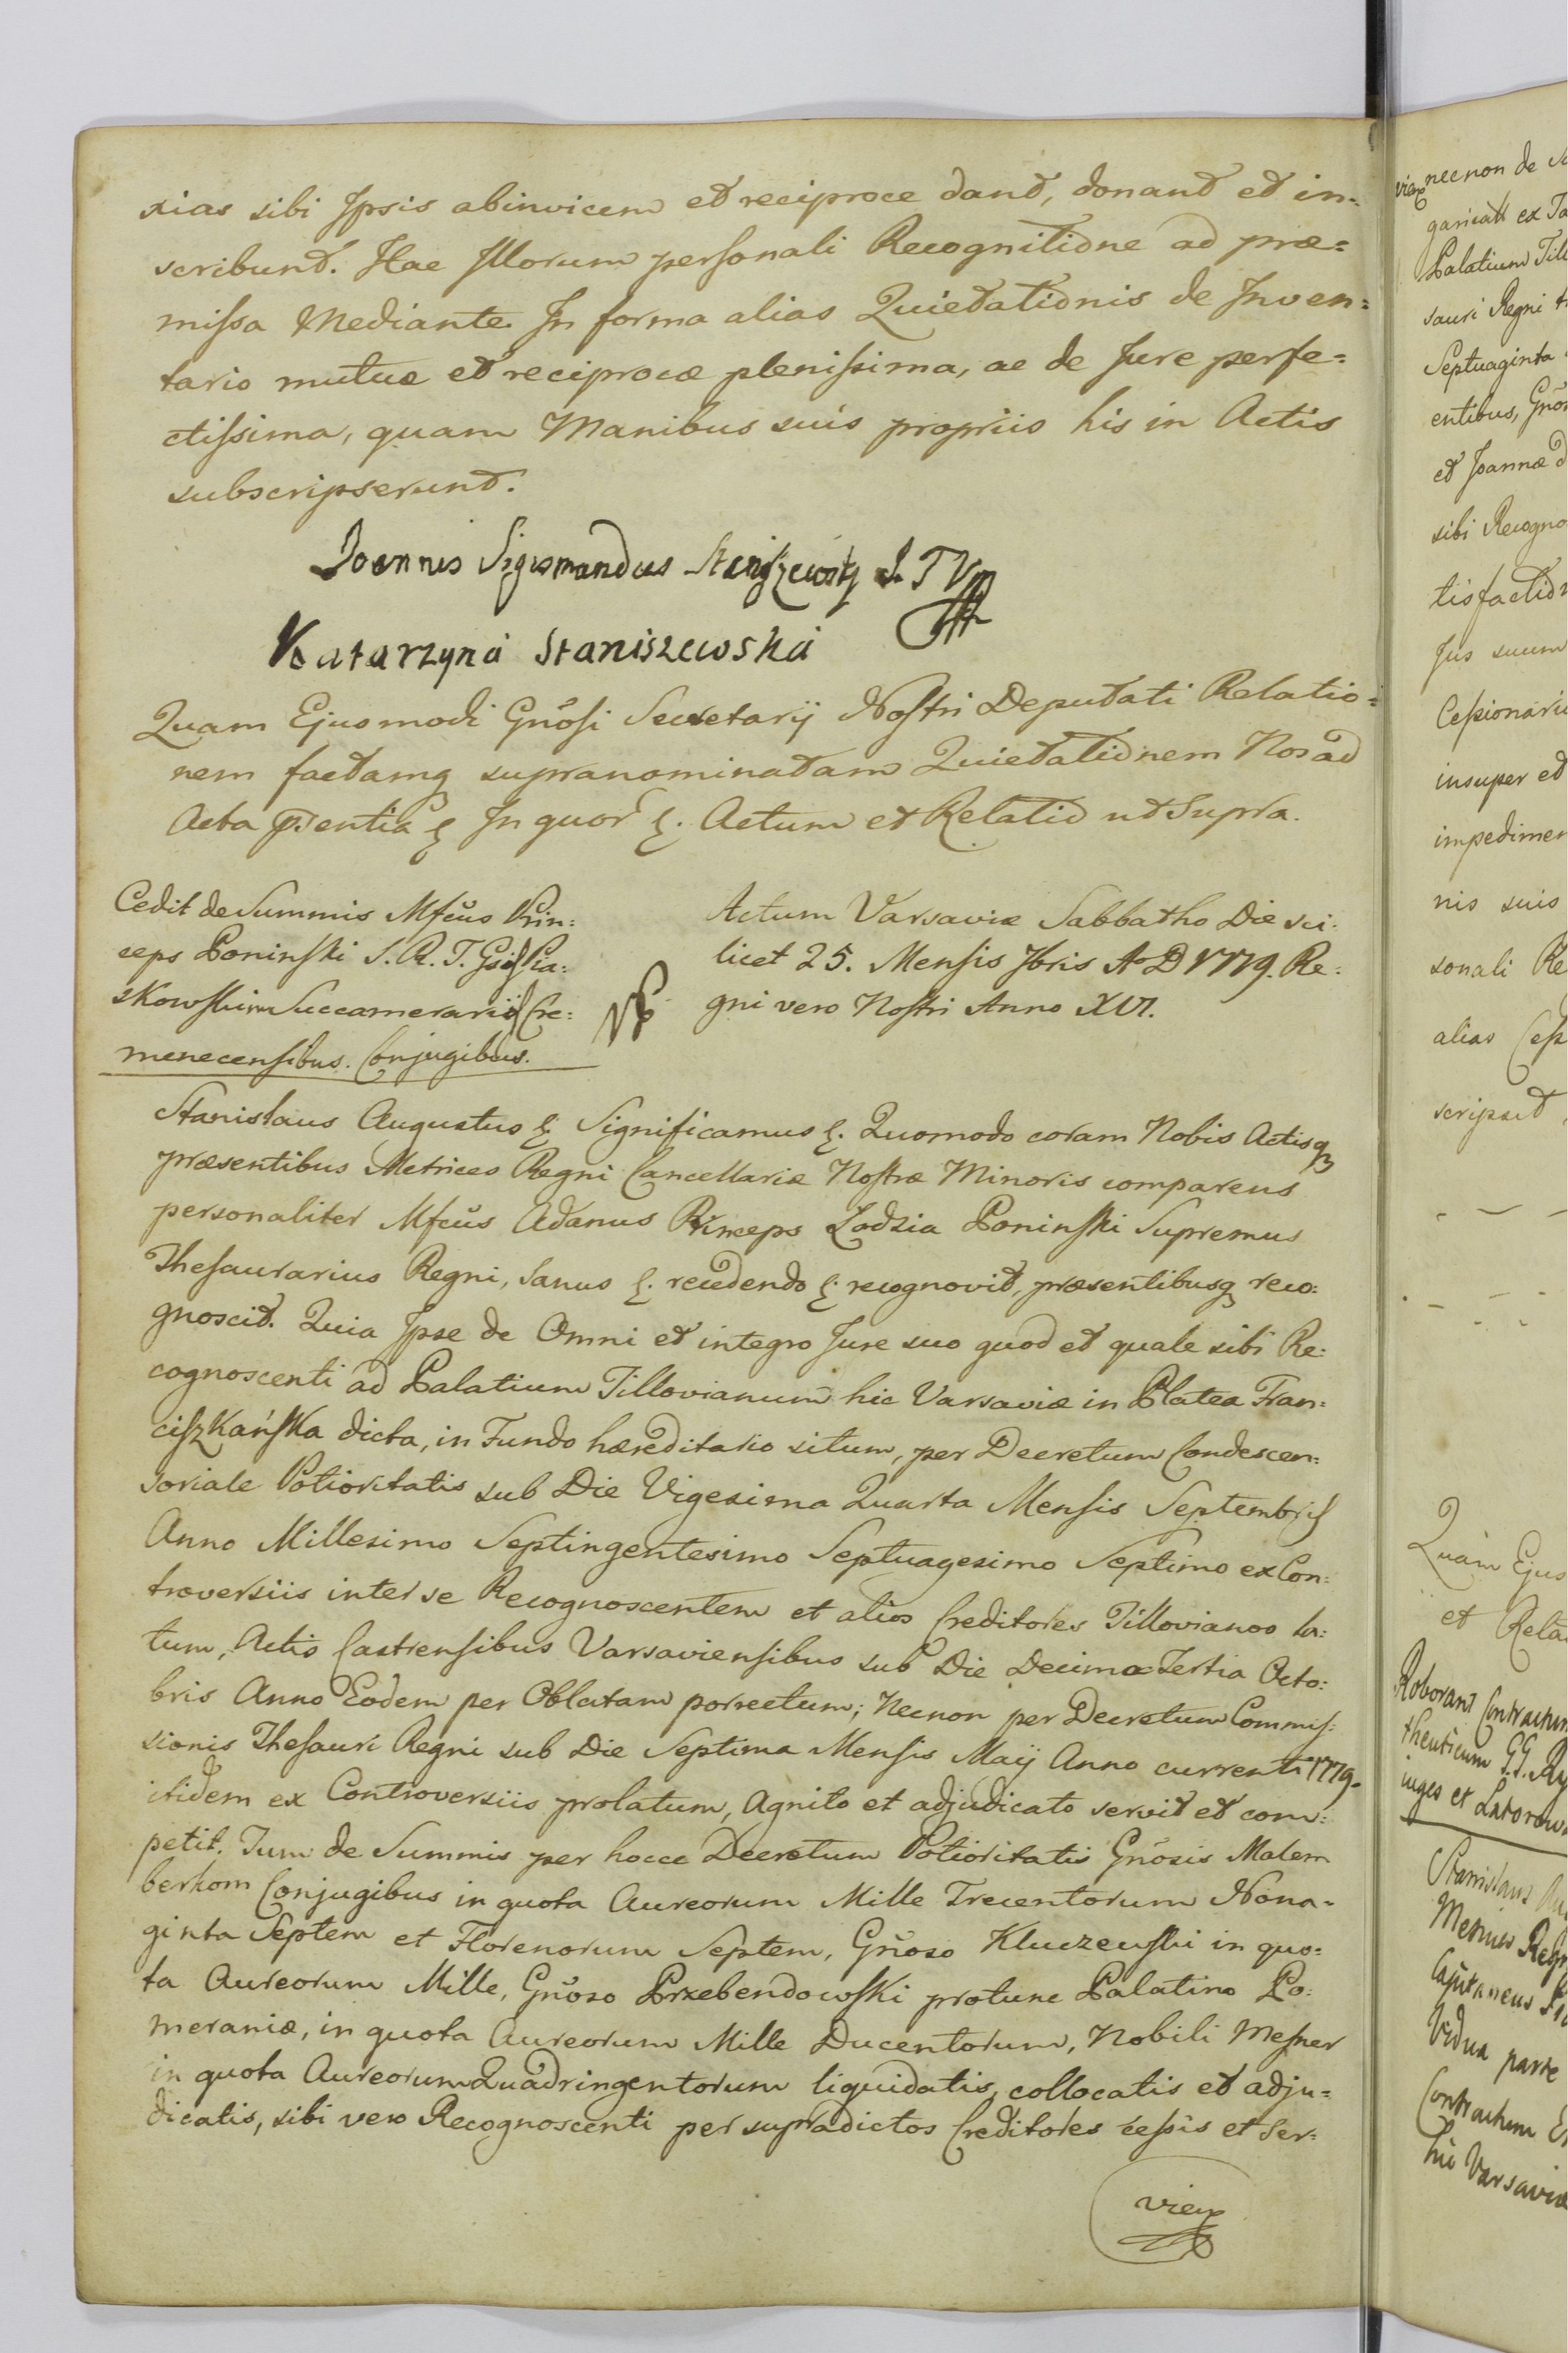 xias sibi Ipsis abinvicem et reciproce dant, donant et in=
scribunt. Hac Illorum personali Recognitione ad præ=
missa Mediante. In forma alias Quietationis de Inven=
tario mutuæ et reciprocæ plenissima, ac de Jure perfe=
ctissima, quam Manibus suis propriis his in Actis
subscripserunt.
Joannes Sigismandus Staniszewsky
Katarzyna Staniszewska
Quam Ejusmodi Gnosi Secretarij Nostri Deputati Relatio=
nem factamq supranominatam Quietationem Nos ad
Acta prentia In quor. Actum et Relatio ut Supra.
Cedit de Summis Mfcus Prin:
ceps Poninski S. R. T. Gsis Pia:
skowskim Succamerariis Cre:
menecensibus. Conjugibus.
Actum Varsaviæ Sabbatho Die sci:
licet 25. Mensis 7bris Ao D 1779. Re:
gni vero Nostri Anno XVI.
Stanislaus Augustus &. Significamus &. Quomodo coram Nobis Actisq
præsentibus Metrices Regni Cancellariæ Nostræ Minoris comparens
personaliter Mfcus Adamus Princeps Lodzia Poninski Supremus
Thesaurarius Regni, Sanus &. recedendo &. recognovit, præsentibusq reco:
gnoscit. Quia Ipse de Omni et integro Jure suo quod et quale sibi Re:
cognoscenti ad Palatium Tillovianum hic Varsaviæ in Platea Fran:
ciszkańska dicta, in Fundo hæreditario situm, per Decretum Condescen:
soriale Potioritatis sub Die Vigesima Quarta Mensis Septembris
Anno Millesimo Septingentesimo Septuagesimo Septimo ex Con:
troversiis inter se Recognoscentem et alios Creditores Tillovianos la:
tum, Actis Castrensibus Varsaviensibus sub Die Decima Tertia Octo:
bris Anno Eodem per Oblatam porrectum; Necnon per Decretum Commis:
sionis Thesauri Regni sub Die Septima Mensis Maij Anno currenti 1779.
itidem ex Controversiis prolatum, Agnito et adjudicato servit et com:
petit. Tum de Summis per hocce Decretum Potioritatis Gnosis Malem
berkom Conjugibus in quota Aureorum Mille Trecentorum Nona=
ginta Septem et Florenorum Septem, Gnoso Kluczewski in quo:
ta Aureorum Mille, Gnoso Przebendowski protunc Palatino Po:
meraniæ, in quota Aureorum Mille Ducentorum, Nobili Mesner
in quota Aureorum Quadringentorum liquidatis, collocatis et adju=
dicatis, sibi vero Recognoscenti per supradictos Creditores cessis et ser=
vien
necnon de
garicatt ex
Palatium
sauri Regni
Septuaginta
entibus,
et Joannæ
sibi
tisfaction
Jus suum
insuper et
nis suis
sonali
alias
scripsit
Quam
et
Roborant
Contractum
hic